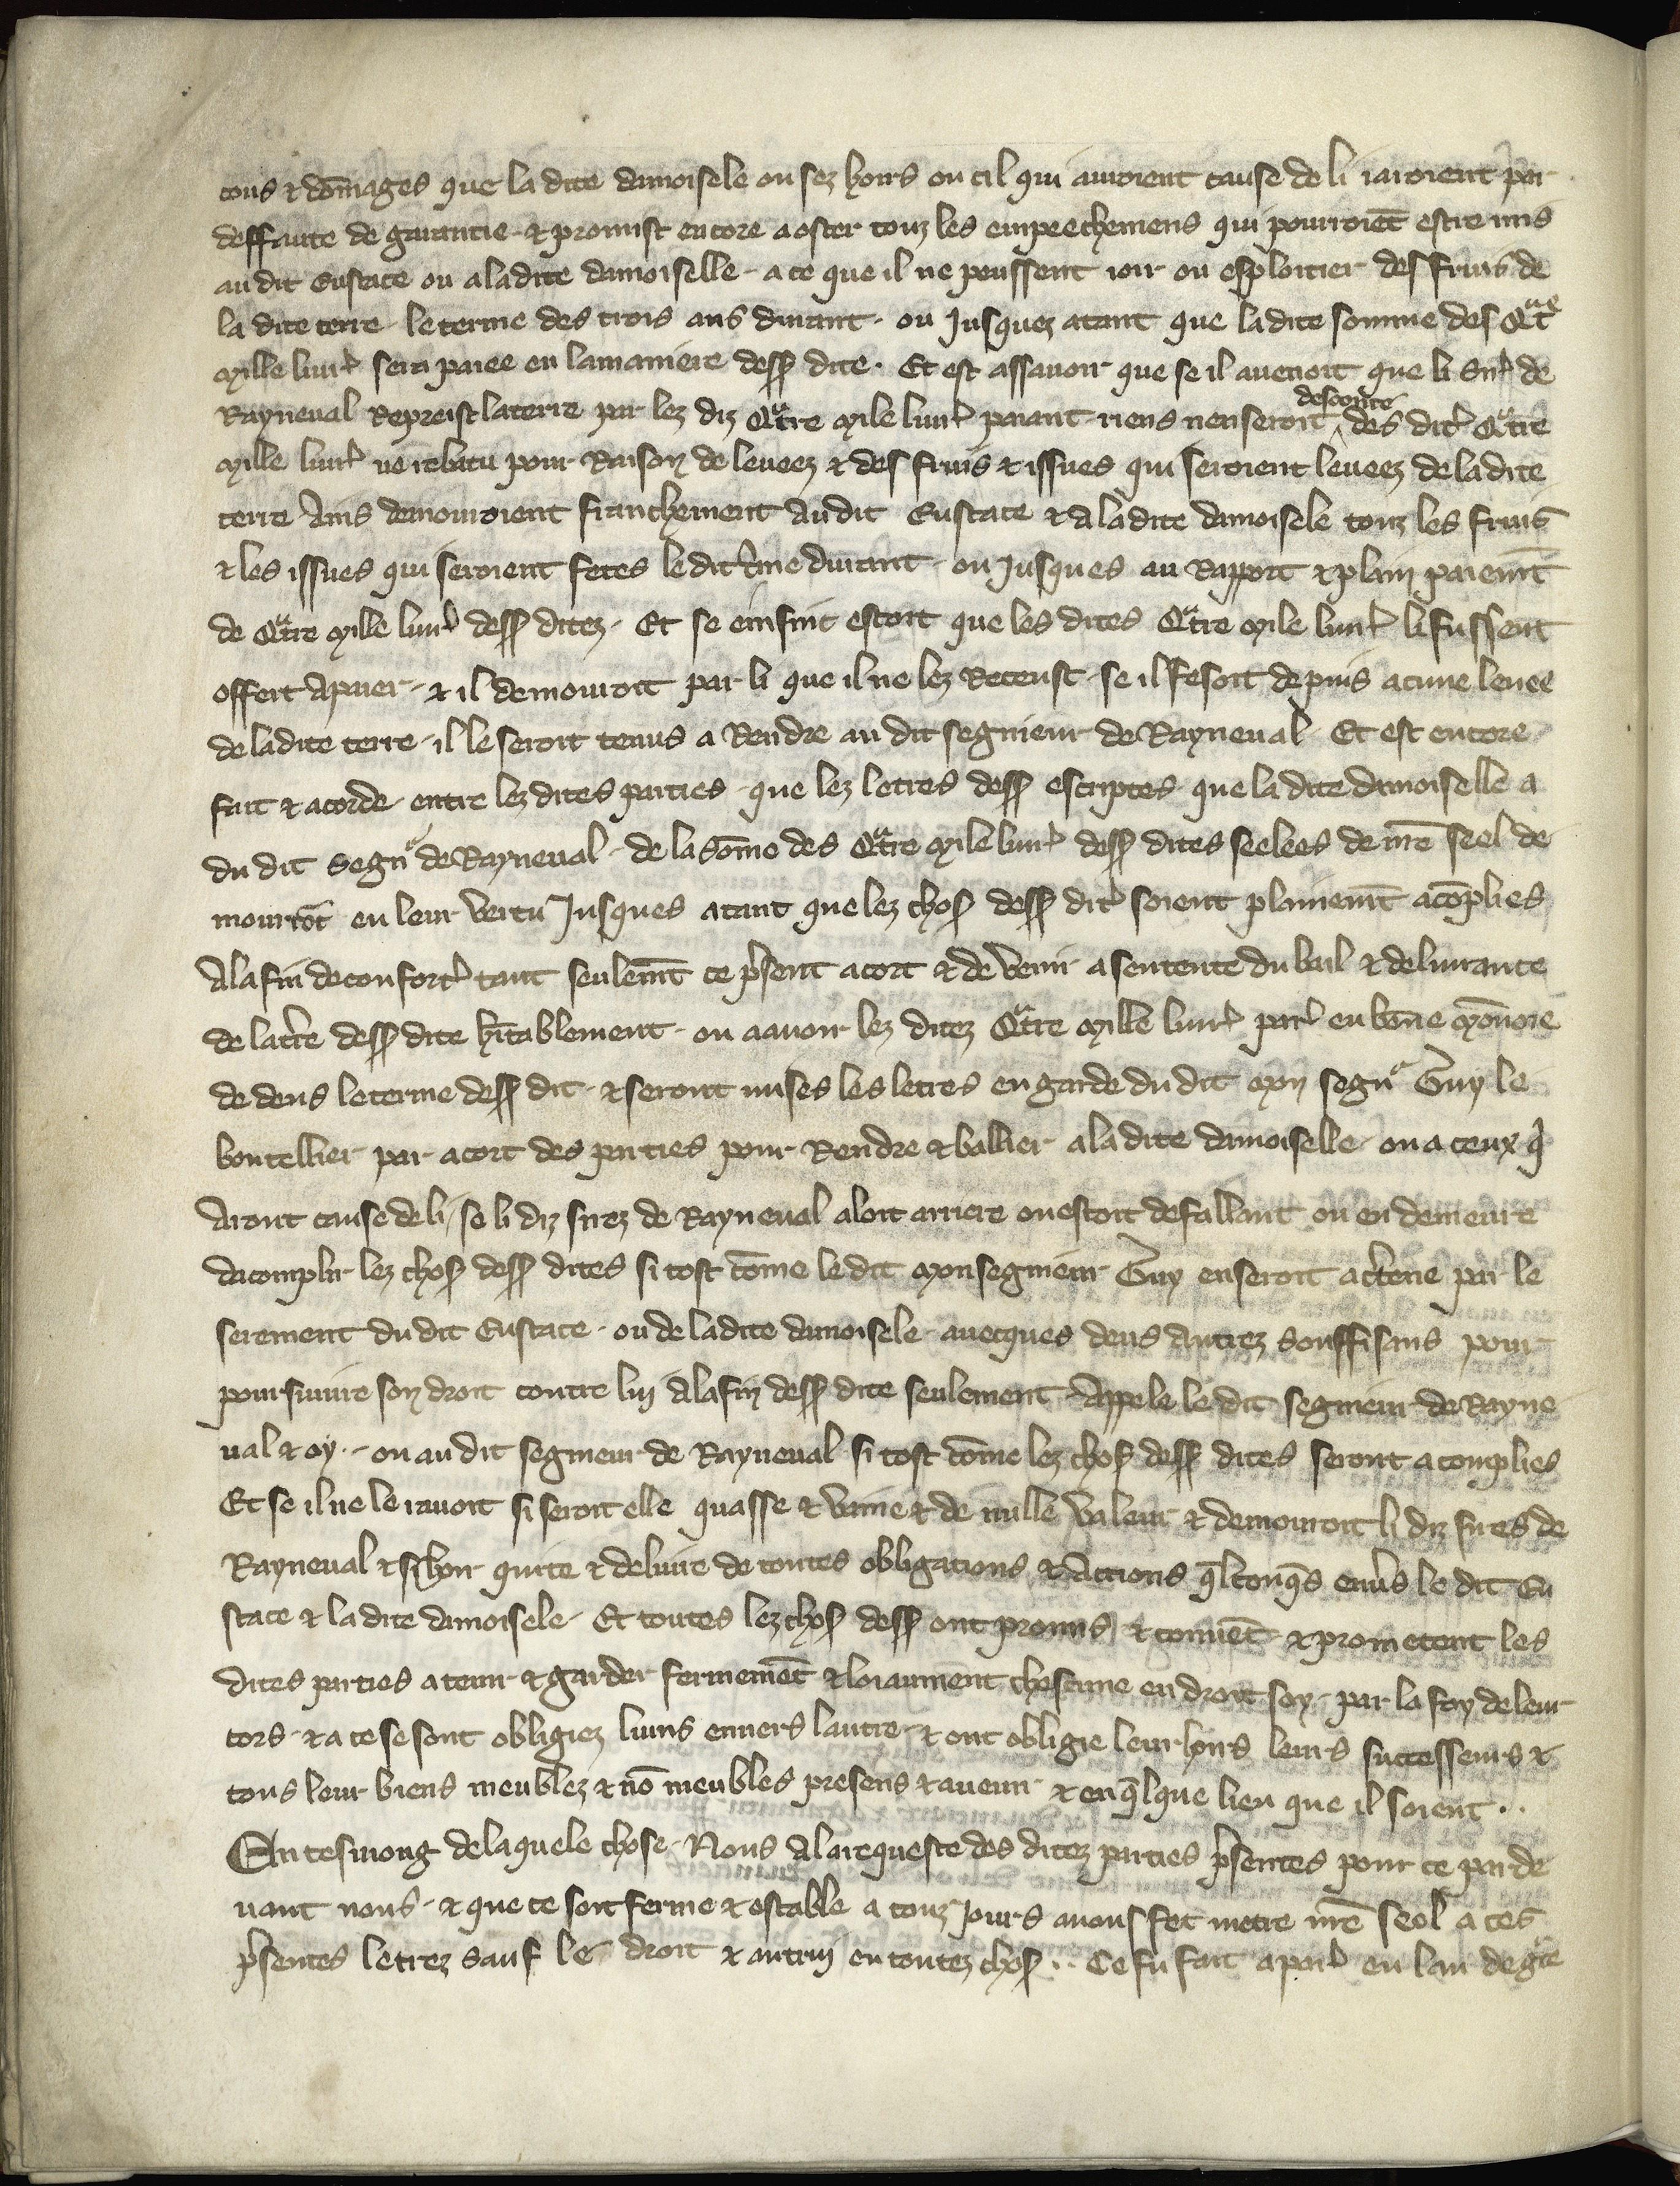 cous & do̅mages que la dite damoisele ou sez hoirs ou cil qui auroient cause de li iaroient par
deffaute de garantie & promist encore a oster touz les empeechemens qui pourroie̅t estre mis
au dit Eustace ou a la dite damoiselle a ce que il ne peussent ioir ou esploitier des fruis de
la dite terre le terme des trois ans durant ou jusquez atant que la dite somme des Qᵃtᵉ
Mille liurꝭ sera paiee en la maniere dess dite. Et est assauoir que se il auenoit que li Sirꝭ de
Rayneual Repreist la terre par lez diz Qᵃtre Mile liurꝭ paiant riens nen seroit desconte des ditꝭ Qᵃtre
Mille liurꝭ ne rebatu pour Raison de leueez & des fruis & issues qui seroient leueez de la dite
terre Ains demourroient franchement Au dit Eustace & A la dite damoisele touz les fruis
& les issues qui seroient fetes le dit tꝰme durant ou jusques au Rapport & plain paiem̅t
de Qᵃtre Mille liurꝭ dess ditez. Et se einsint estoit que les dites Qᵃtre Mile liurꝭ li fussent
offert A paier & il demouroit par li que il ne lez Receust se il fesoit depuis acune leuee
de la dite terre il le seroit tenus a Rendre au dit segnieur de Rayneual Et est encore
fait & acorde entre lez dites parties que lez letres dess escriptes que la dite damoiselle a
du dit Segnʳ de Rayneual de la so̅me des Qᵃtre Mile liurꝭ dess dites seelees de nr̅e seel de
mourro̅t en leur vertu Jusques atant que lez chos dess ditꝭ soient plainem̅t aco̅plies
A la fin de confortꝭ tant seulem̅t ce pꝰsent acort & de venir a sentence du bail & deliurance
de la tꝰre dess dite h̅itablement ou a auoir lez ditez Qᵃtre Mille liurꝭ parꝭ en bo̅ne Mo̅noie
de dens le terme dess dit & seront mises les letres en garde du dit Mon segnʳ Guy le
boutellier par acort des parties pour Rendre & baillier a la dite damoiselle ou a ceux qⁱ
Aront cause de li se li diz sirez de Rayneual aloit arriere ou estoit defaillant ou en demeure
dacomplir lez chos dess dites si tost co̅me le dit Monsegnieur Guy en seroit actꝰene par le
serement du dit Eustace ou de la dite damoisele auecques deus Autrez souffisans pour
poursuiure son droit contre lui A la fin dess dite seulement Appele le dit segnieur de Rayne
ual & oy. ou au dit segnieur de Rayneual si tost co̅me lez chos dess dites seront acomplies
Et se il ne le rauoit si seroit elle quasse & vaine & de nulle valeur & demouroit li diz sires de
Rayneual & si hoir quite & deliure de toutes obligations & Actions q̅lconq̅s enuꝰs le dit Eu
stace & la dite damoisele Et toutes lez chos dess ont promis & conue̅t & prometent les
dites parties a tenir & garder fermeme̅t & loiaument chascune en droit soy par la foy de leur
cors & a ce se sont obligiez luns enuers lautre & ont obligie leur hoirs leurs successeurs &
tous leur biens meublez & no̅ meubles presens & auenir & en q̅lque lieu que il soient..
En tesmong de la quele chose Nous A la requeste des ditez parties pꝰsentes pour ce par de
uant nous & que ce soit ferme & estable a touz Jours auons fet metre nr̅e Seel a ces
pꝰsentes letrez sauf le droit & autrui en toutez chos.. Ce fu fait a parꝭ en lan de gᵃce